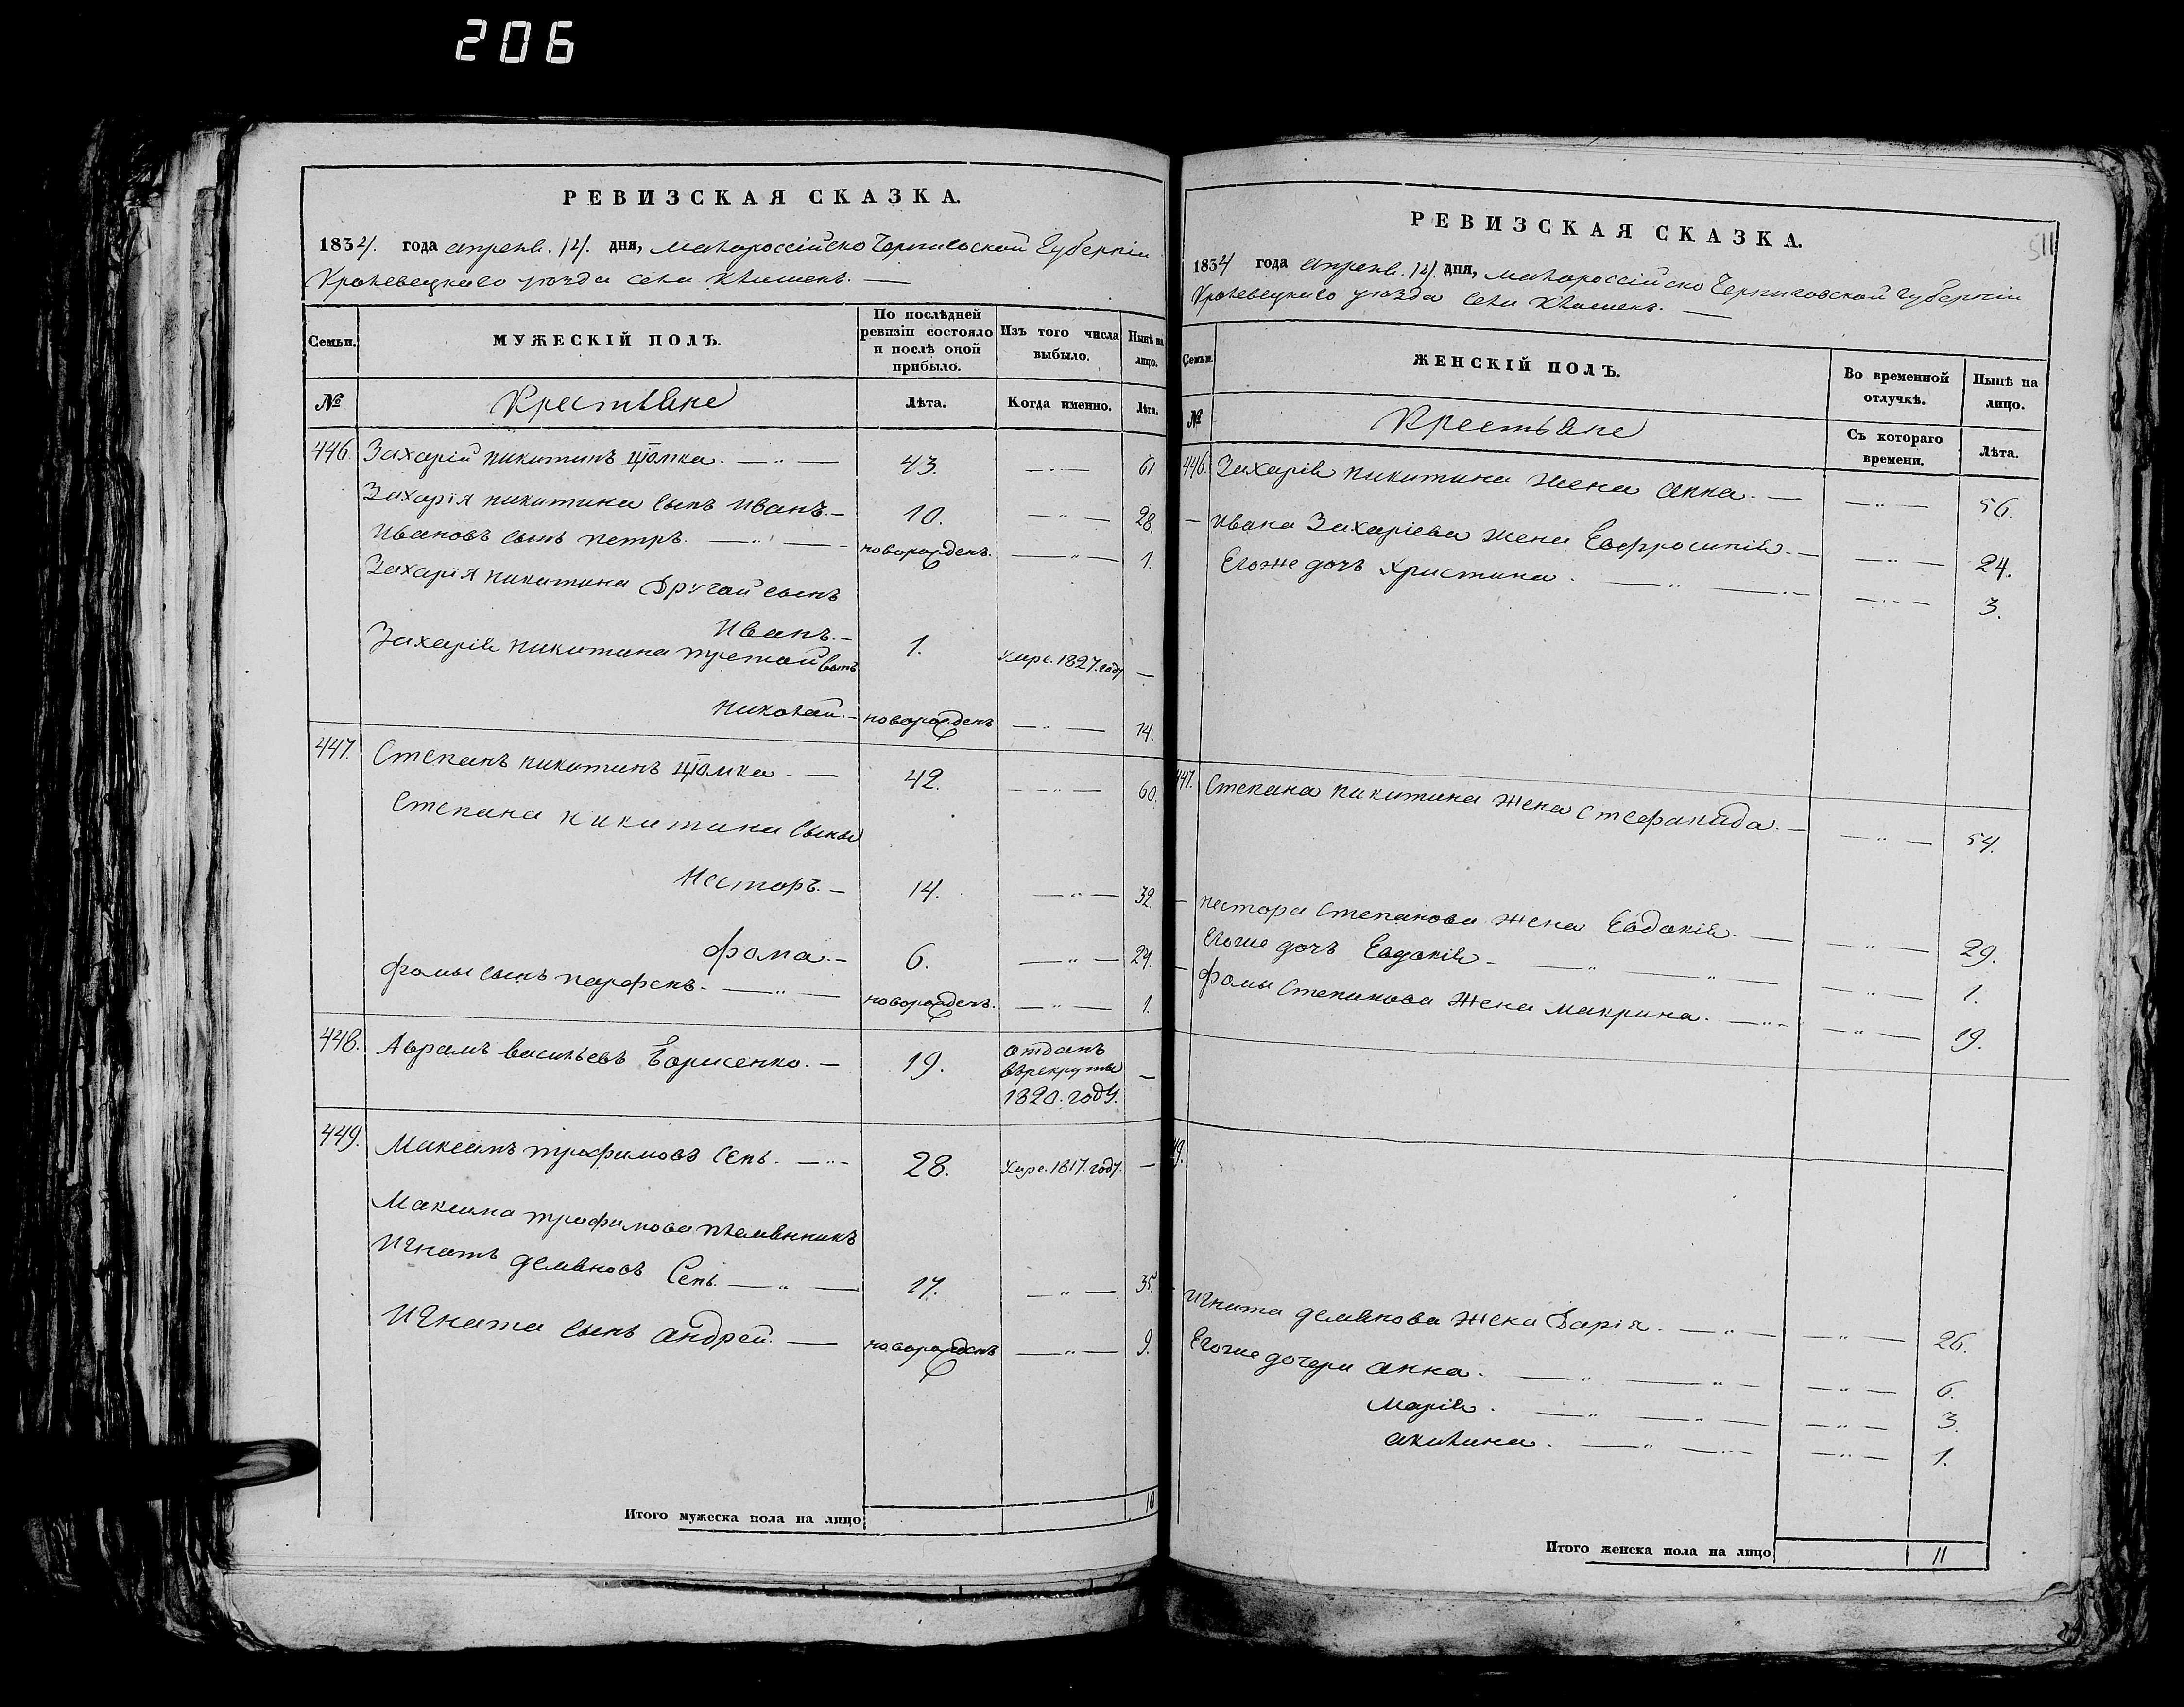 206
РЕВИЗСКАЯ СКАЗКА.
1834. года апреля. 14. дня, Малороссійско Черниговской Губерніи
Кролевецкаго уѣзда села Клишекъ. —
Семьи.
МУЖЕСКІЙ ПОЛЪ.
По послѣдней
ревизіи состояло
и послѣ оной
прибыло.
Изъ того числа
выбыло.
Нынѣ на
лицо.
№
Крестьяне
Лѣта.
Когда именно.
Лѣта.
446. Захарій никитинъ — 43. — 61.
Захарія никитина сынъ иванъ. — 10. — 28.
Ивановъ сынъ петръ. — новорожденъ. — 1.
Захарія никитина другой сынъ
Иванъ. — 1. умре. 1827. году —
Захарія никитина третой сынъ
николай. — новорожденъ — 14.
447. Степанъ никитинъ — 42. — 60.
Степана никитина сыны
Несторъ. — 14. — 32.
фома. — 6. — 24.
фомы сынъ парфенъ. — новорожденъ. — 1.
448. Аврамъ васильевъ Борисенко. — 19. отданъ
въ рекруты
1820. году. —
449. Максимъ трофимовъ Сень. — 28. Умре. 1817. году. —
Максима трофимова племянникъ
Игнатъ демяновъ Сень. — 17. — 35.
Игната сынъ андрей. — новорожденъ — 9.
Итого мужеска пола на лицо 10
511
РЕВИЗСКАЯ СКАЗКА.
1834 года апреля. 14. дня, Малороссійско Черниговской губерніи
Кролевецкаго уѣзда села Клишекъ. —
Семьи.
ЖЕНСКІЙ ПОЛЪ.
Во временной
отлучкѣ.
Нынѣ на
лицо.
№
Крестьяне
Съ котораго
времени.
Лѣта.
446. Захарія никитина жена анна. — 56.
— ивана Захаріева жена Евфросинія. — 24.
Егоже дочь христина. — 3.
447. Степана никитина жена стефанида. — 54.
— нестора степанова жена Евдокія. — 29.
Егоже дочь Евдокія — 1.
— фомы степанова жена макрина. — 19.
49.
Игната демянова жена Дарія. — 26.
Егоже дочери анна. — 6.
Марія. — 3.
акилина. — 1.
Итого женска пола на лицо 11